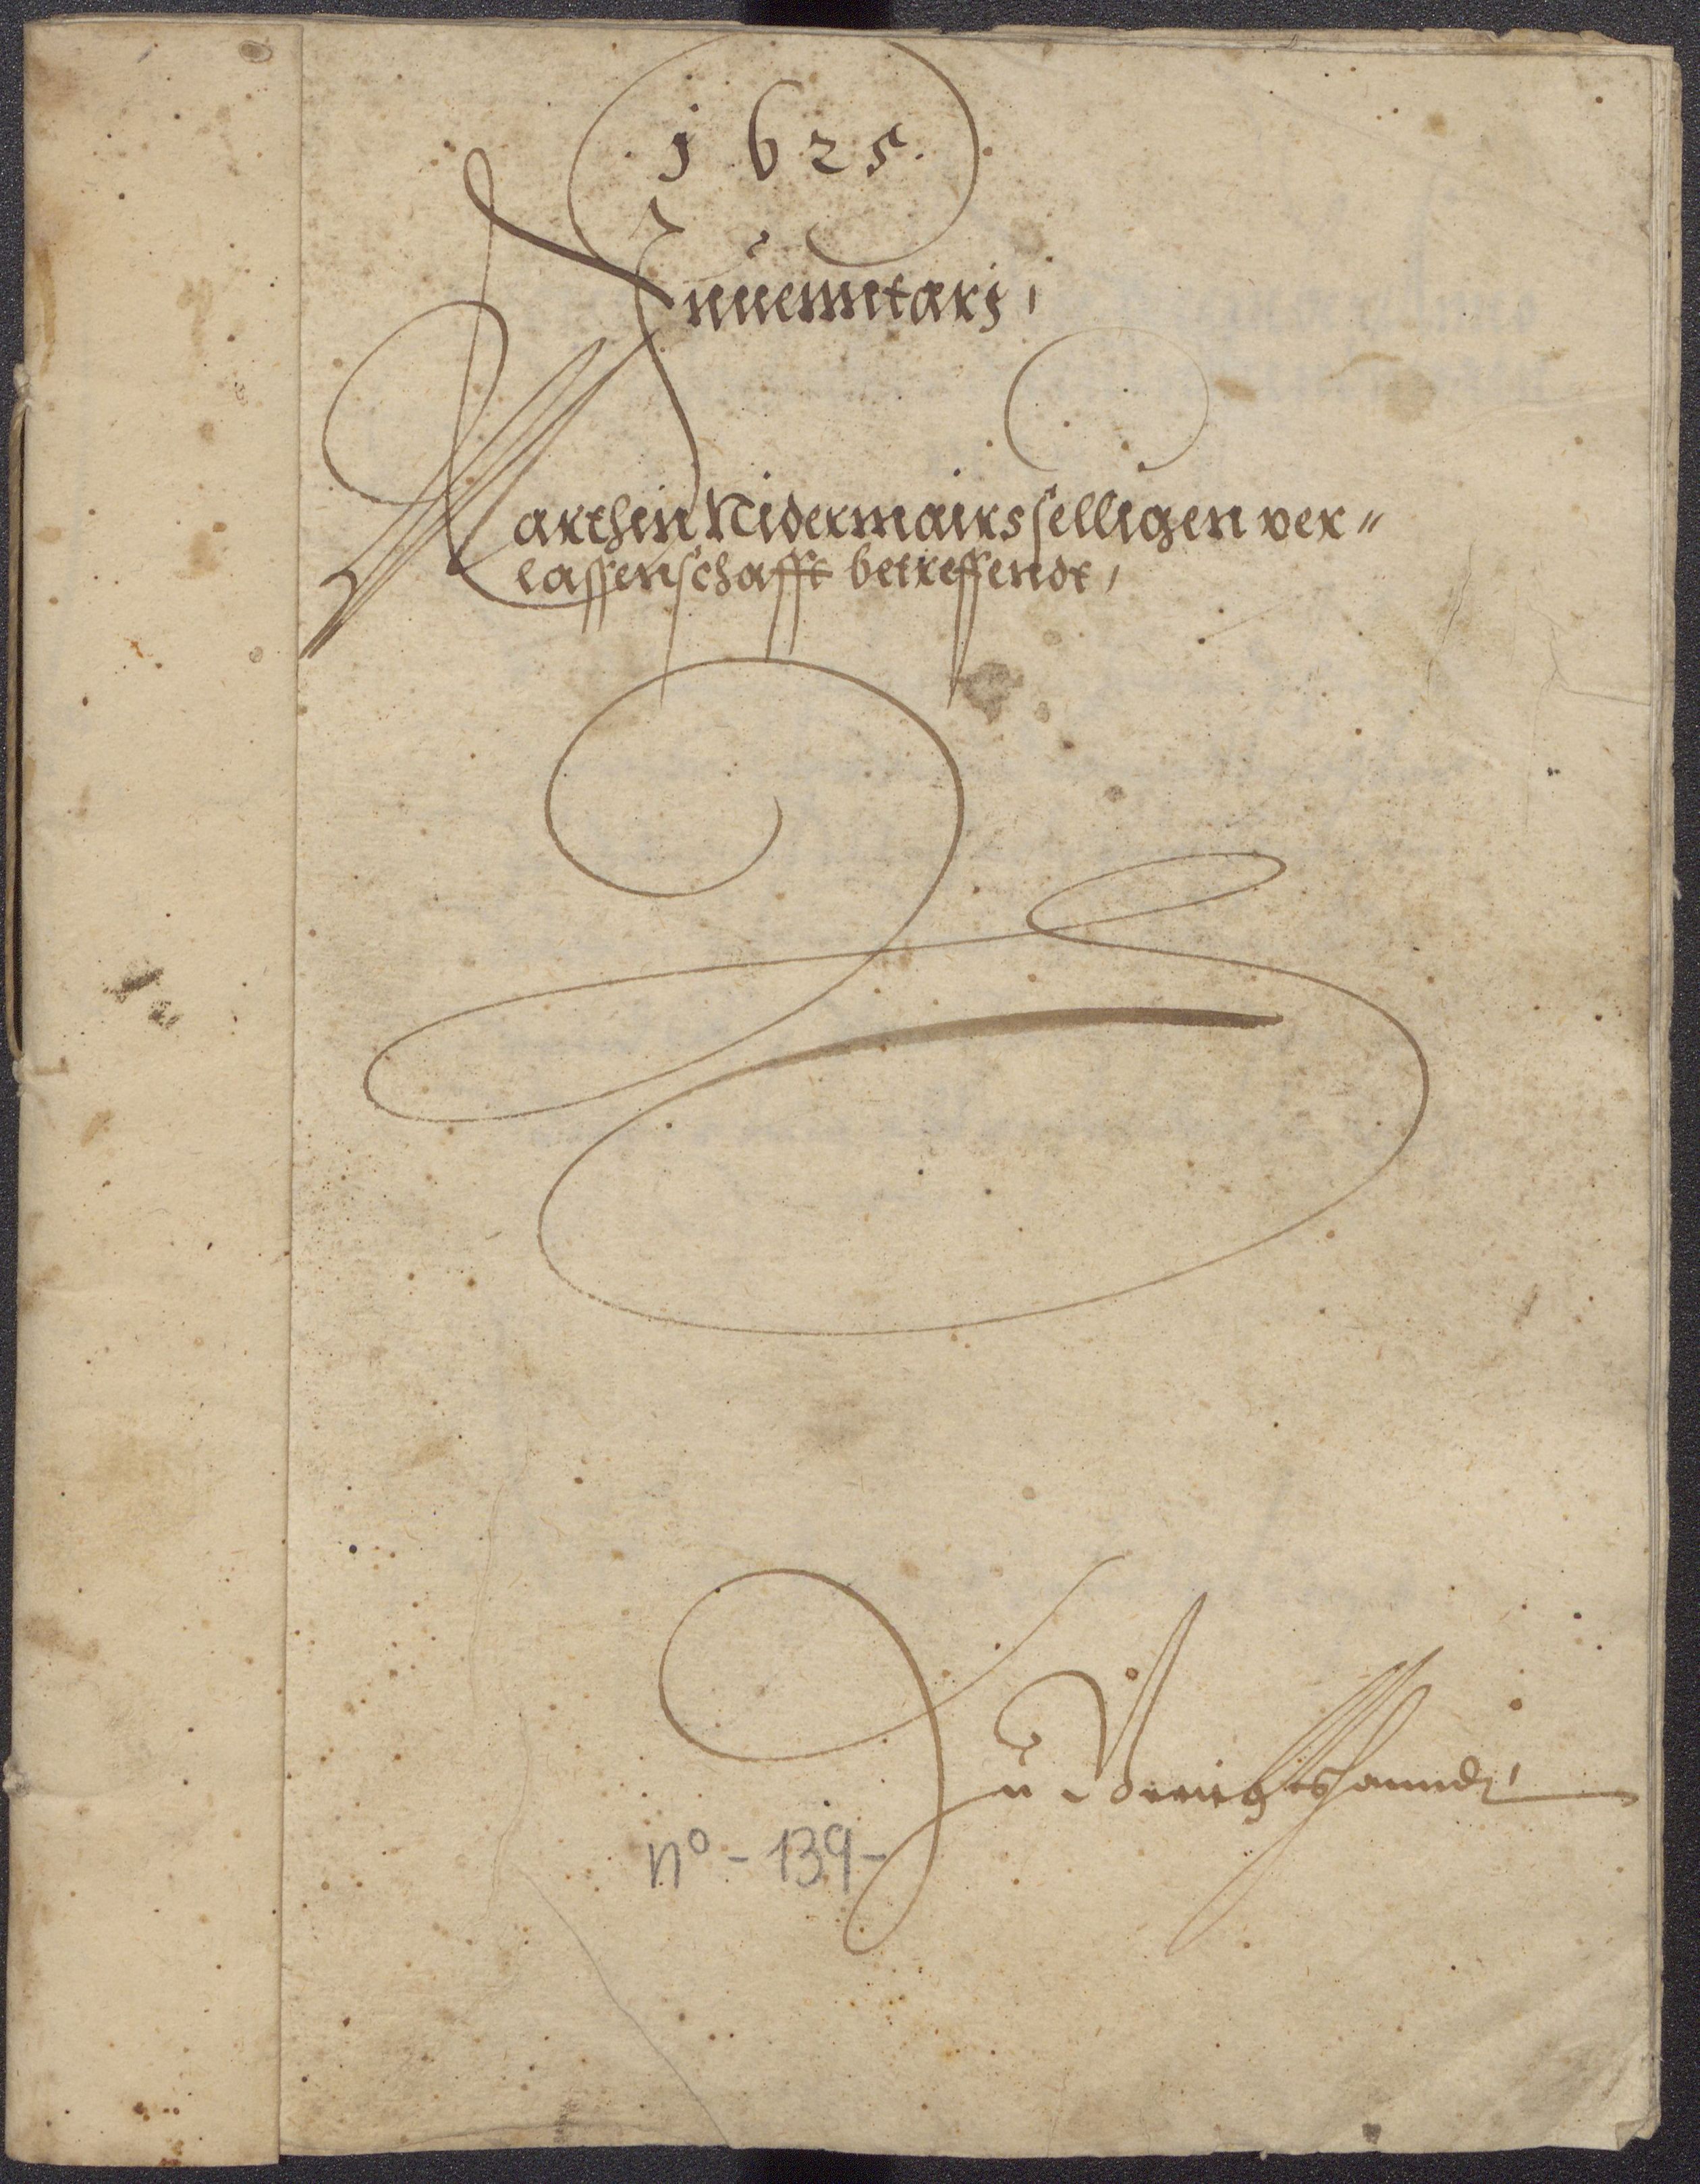 1625.
Inuenntarj,
Marthin Nidermairs selligen ver=
lassenschafft betreffendt,
Zu Gerichtshanndt,
nº - 139 -